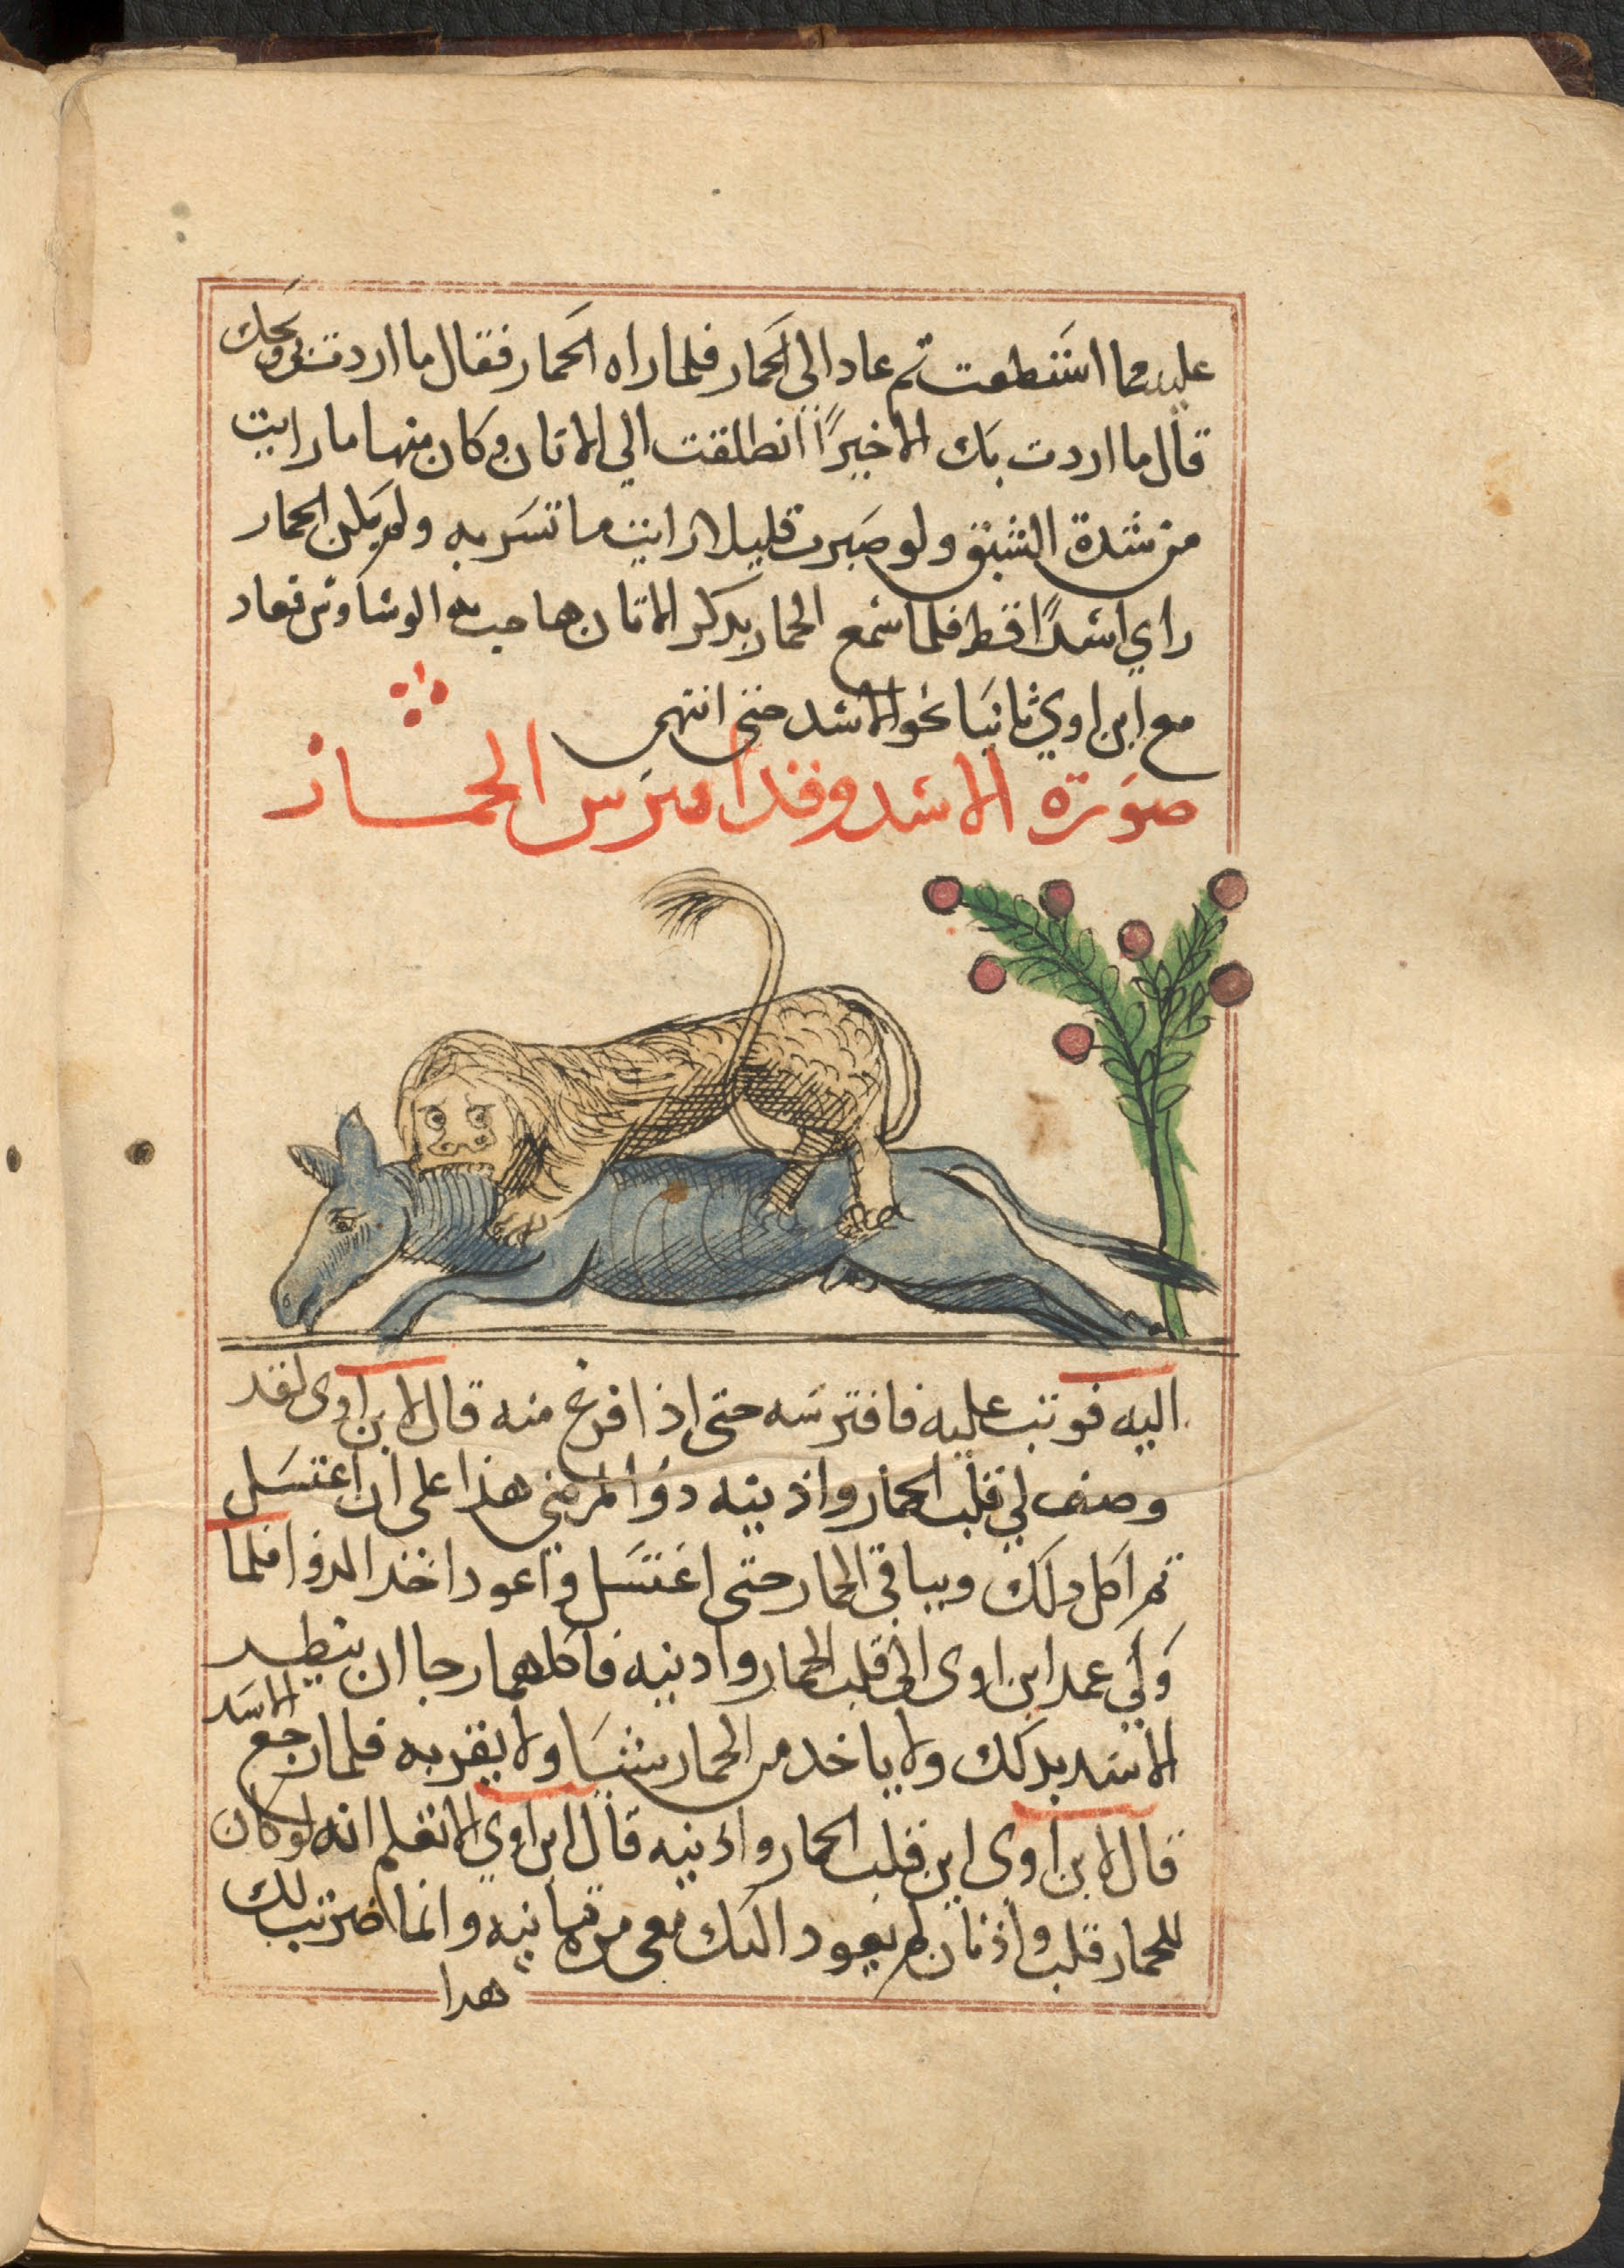 عليهما استطعت ثم عاد الى الحمار فلما راه الحمار فقال ما اردت بي ويحك
قال ما اردت بك الا خيرًا انطلقت الي الاتان وكان منها ما رايت
من شدة الشبق ولو صبرت قليلا لرايت ما تسر به ولم يكن الحمار
راي اسدًا قط فلما سمع الحمار بذكر الاتان هاجت به الوساوس فعاد
مع ابن اوي ثانيا نحو الاسد حتى انتهى
صورة الاسد وقد افترس الحمار
اليه فوثب عليه فافترسه حتى اذا فرغ منه قال لابن اوى لقد
وصف لي قلب الحمار واذنيه دوا لمرضي هذا على ان اغتسل
ثم اكل ذلك وبباقي الحمار حتى اغتسل واعود اخذ الدوا فلما
ولي عمد ابن اوى الى قلب الحمار واذنيه فاكلهما رجا ان يتطير
الاسد بذلك ولا ياخد من الحمار شيا ولا يقربه فلما رجع الاسد
قال لابن اوى اين قلب الحمار واذنيه قال ابن اوي الا تعلم انه لو كان
للحمار قلب واذنان لم يعود اليك معي مرة ثانيه وانما ضربت لك
هدا